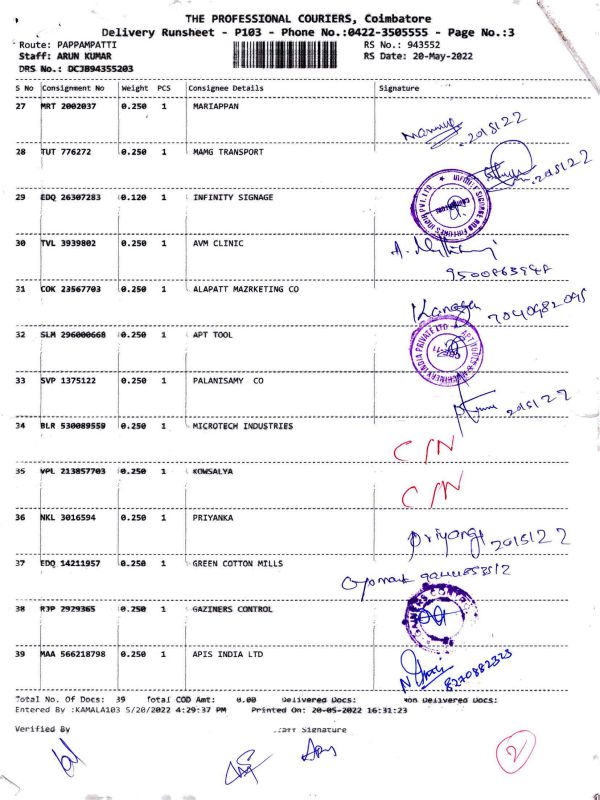 THE PROFESSIONAL COURIERS, Coimbatore
Delivery Runsheet - P103 - Phone No.:0422-3505555 - Page No.:3
Route: PAPPAMPATTI RS No.: 943552
Staff: ARUN KUMAR RS Date: 20-May-2022
DRS No.: DCJB94355203
S No Consignment No Weight PCS Consignee Details Signature
27 MRT 2002037 0.250 1 MARIAPPAN
20/5/22
28 TUT 776272 0.250 1 MAMG TRANSPORT
20/5/22
29 EDQ 26307283 0.120 1 INFINITY SIGNAGE
30 TVL 3939802 0.250 1 AVM CLINIC
31 COK 23567703 0.250 1 ALAPATT MAZRKETING CO
Kanaga 7040982095
32 SLM 296000668 0.250 1 APT TOOL
33 SVP 1375122 0.250 1 PALANISAMY CO
20/5/22
34 BLR 530089559 0.250 1 MICROTECH INDUSTRIES
C/N
35 VPL 213857703 0.250 1 KOWSALYA
C/N
36 NKL 3016594 0.250 1 PRIYANKA
20/5/22
37 EDQ 14211957 0.250 1 GREEN COTTON MILLS
38 RJP 2929365 0.250 1 GAZINERS CONTROL
39 MAA 566218798 0.250 1 APIS INDIA LTD
8270882323
Total No. Of Docs: 39 Total COD Amt: 0.00 Delivered Docs: Non Delivered Docs:
Entered By :KAMALA103 5/20/2022 4:29:37 PM Printed On: 20-05-2022 16:31:23
Verified By Staff Signature
2